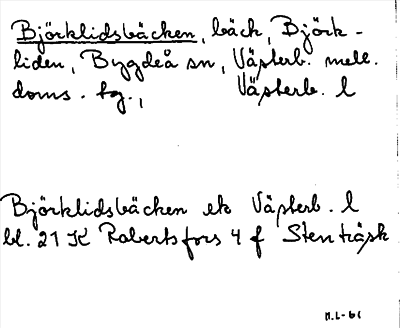 Björklidsbäcken, bäck, Björk-
liden, Bygdeå sn, Västerb. mell.
doms. tg., Västerb. l
Björklidsbäcken ek Västerb. l
bl. 21 K Robertsfors 4 f Stenträsk
M.L-61